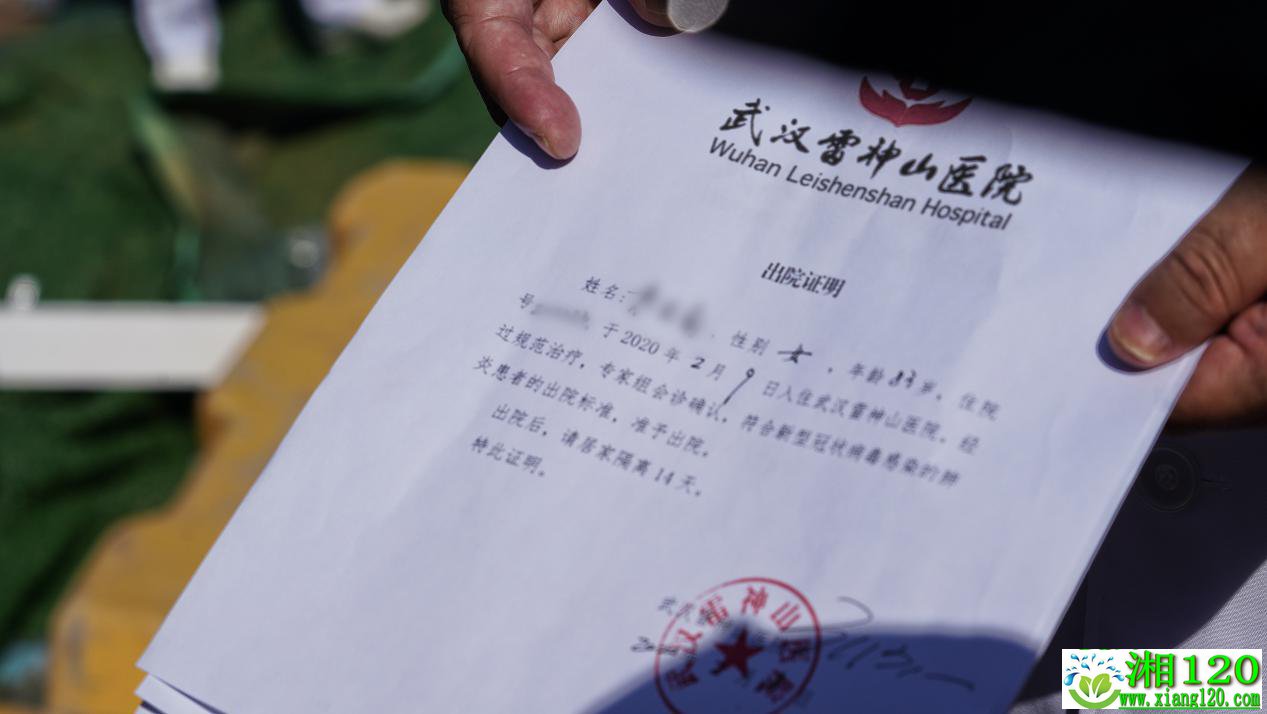 武汉雷神山医院
Wuhan Leishenshan Hospital
出院证明
姓名: 性别 女 , 年龄 岁, 住院
号 于2020年2月9日入住武汉雷神山医院。经
过规范治疗, 专家组会诊确认, 符合新型冠状病毒感染的肺
炎患者的出院标准, 准予出院。
出院后, 请居家隔离14天。
特此证明。
武汉雷神山医院
湘120
www.xiang120.com